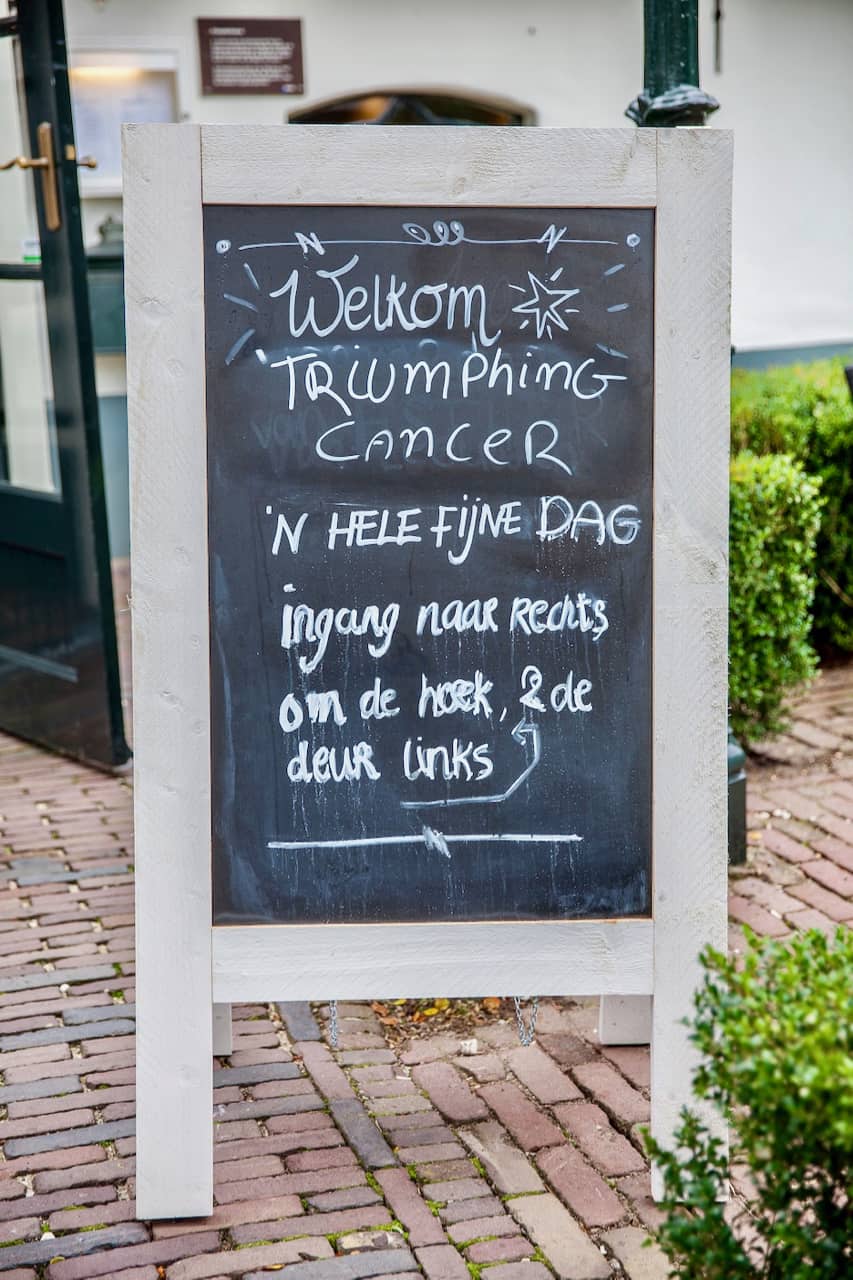 Welkom
'TRIUMPhiNG
CANCER
'N HELE FIJNE DAG
ingang naar Rechts
om de hoek, 2 de
deur links